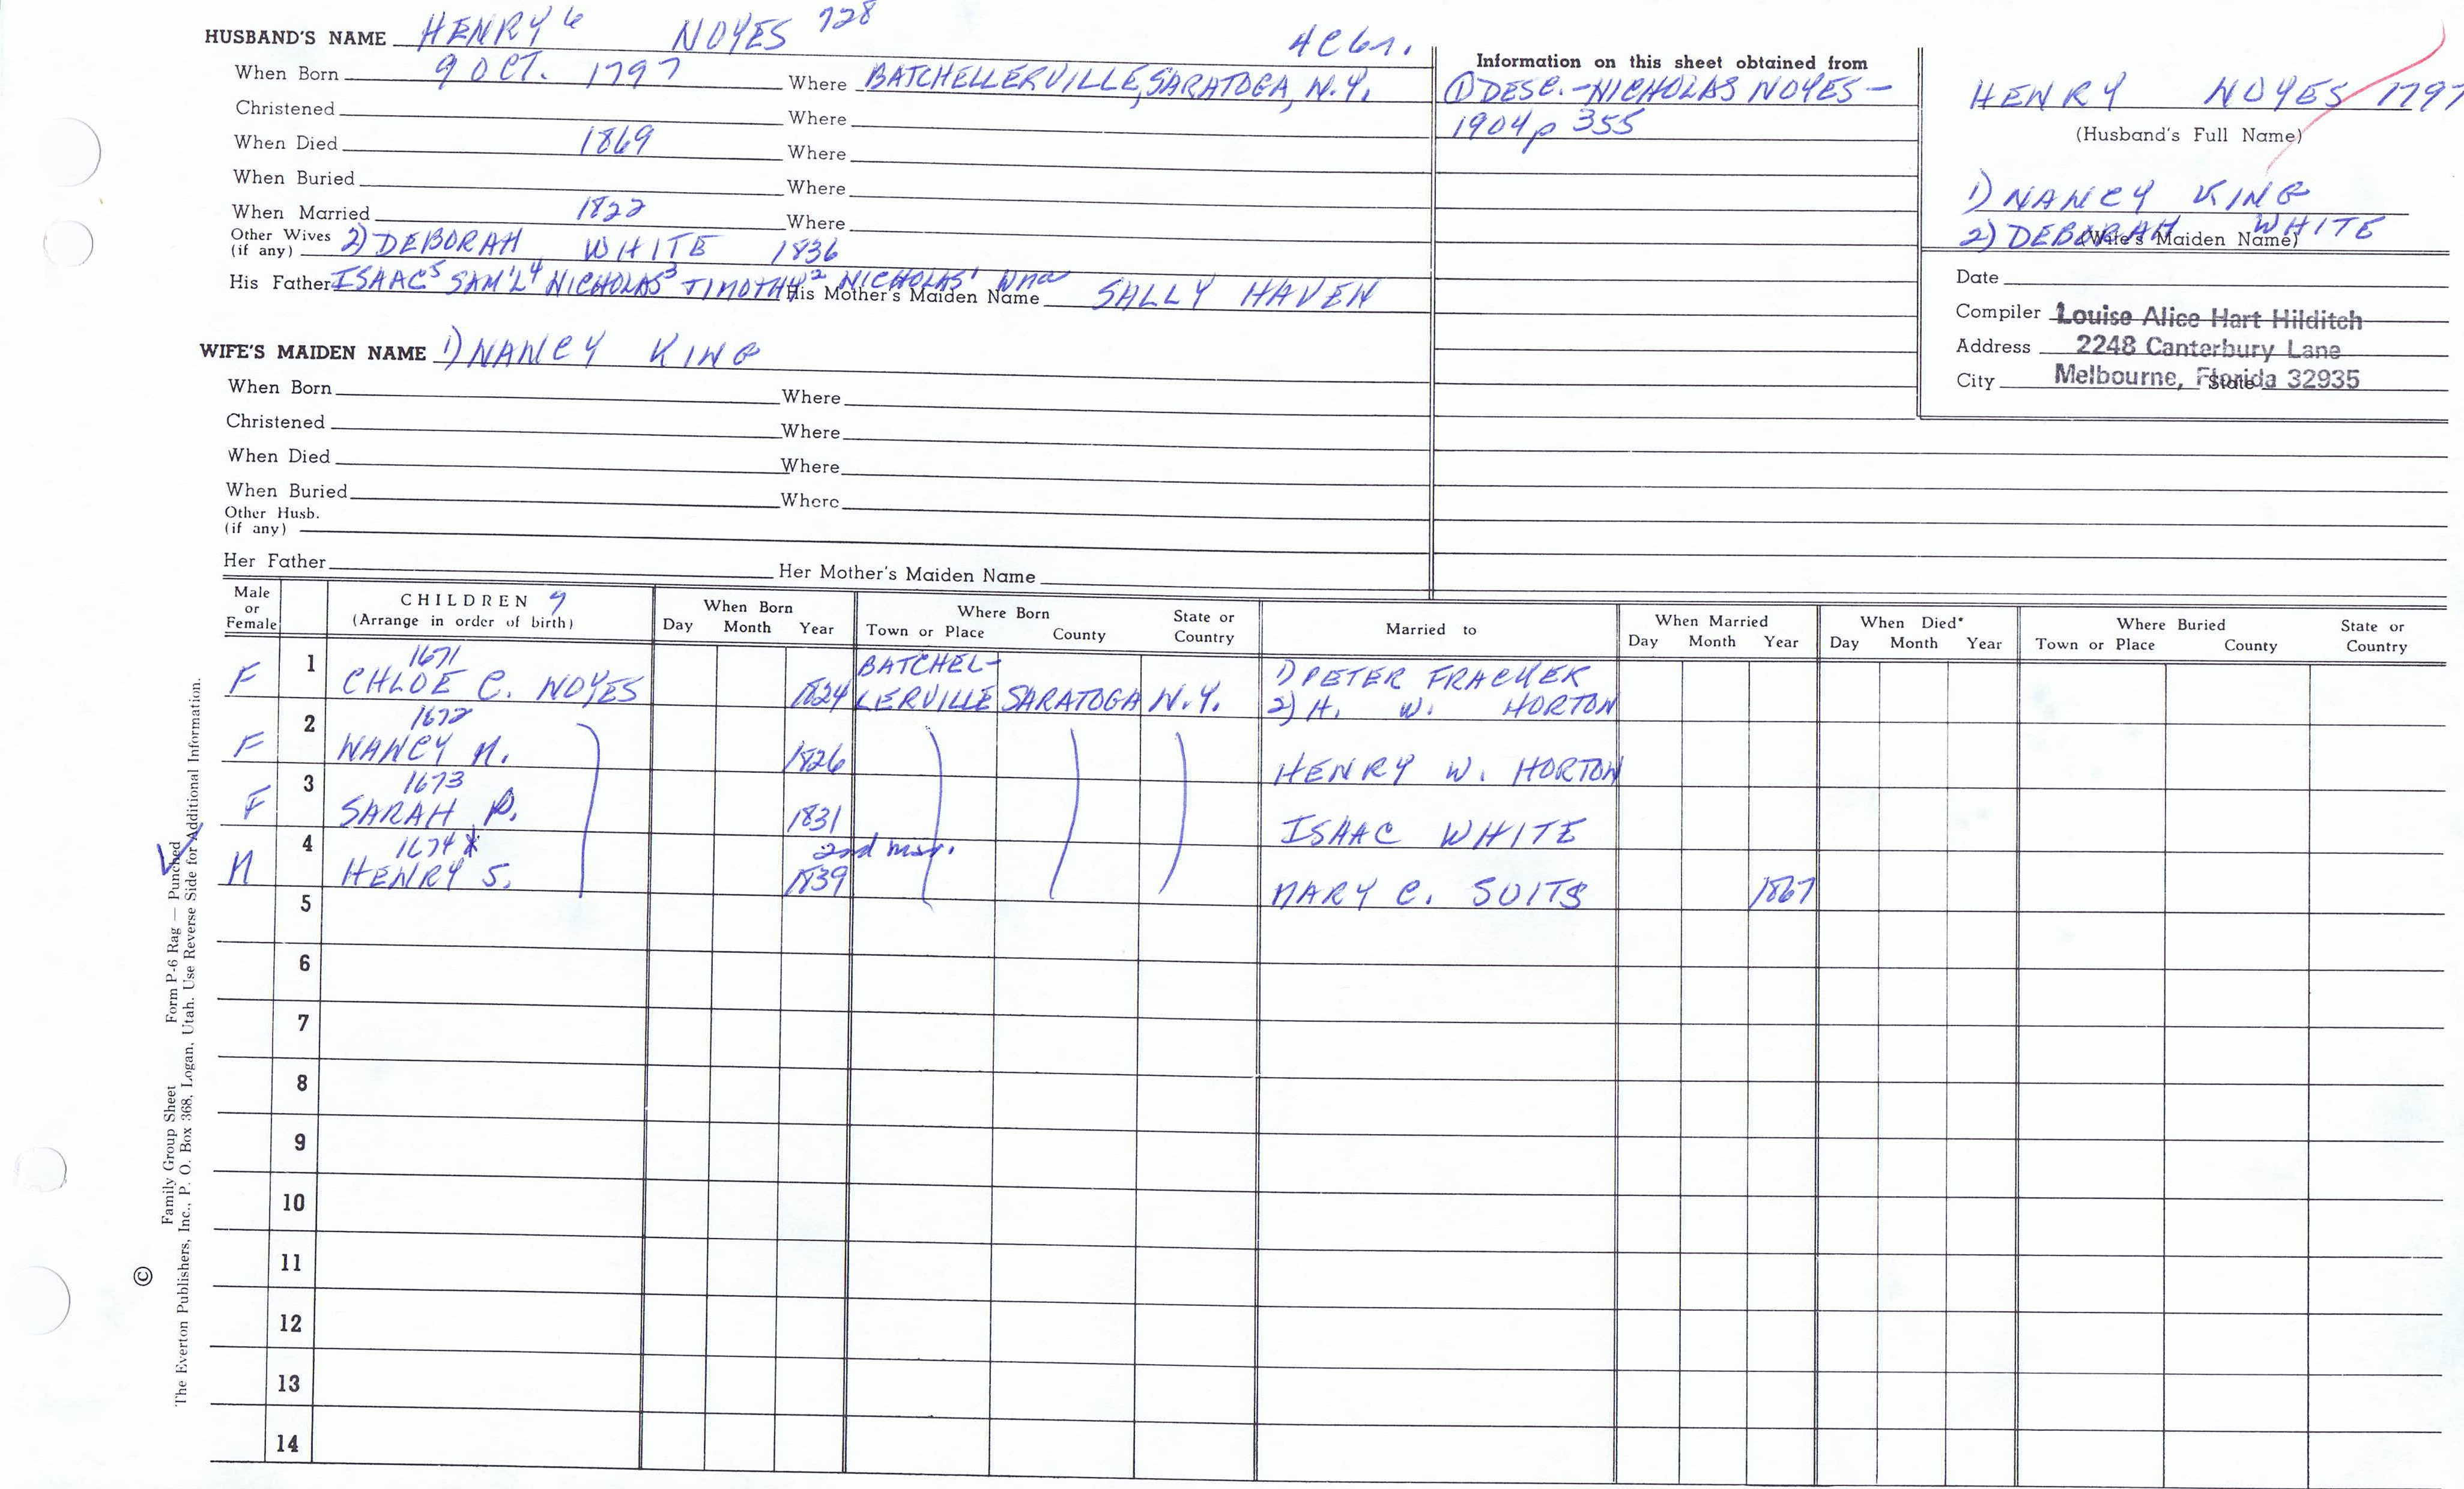 HUSBAND'S NAME HENRY⁶ NOYES 728 4C6r.
When Born 9 OCT. 1797 Where BATCHELLERVILLE, SARATOGA, N.Y.
Christened Where
When Died 1869 Where
When Buried Where
When Married 1822 Where
Other Wives (if any) 2) DEBORAH WHITE 1836
His Father ISAAC⁵ SAM'L⁴ NICHOLAS³ TIMOTHY² NICHOLAS¹ His Mother's Maiden Name SALLY HAVEN
WIFE'S MAIDEN NAME 1) NANCY KING
When Born Where
Christened Where
When Died Where
When Buried Where
Other Husb.
(if any)
Her Father Her Mother's Maiden Name
Information on this sheet obtained from
① DESC.-NICHOLAS NOYES-
1904 p 355
HENRY NOYES 1797
(Husband's Full Name)
1) NANCY KING
2) DEBORAH WHITE
(Wife's Maiden Name)
Date
Compiler Louise Alice Hart Hilditch
Address 2248 Canterbury Lane
City Melbourne, Florida 32935 State
Male or Female
CHILDREN
(Arrange in order of birth)
When Born
Day Month Year
Where Born
Town or Place County State or Country
Married to
When Married
Day Month Year
When Died*
Day Month Year
Where Buried
Town or Place County State or Country
1 1671 BATCHEL- 1) PETER FRACKER
F CHLOE C. NOYES 1824 LERVILLE SARATOGA N.Y. 2) H. W. HORTON
2 1672
F NANCY M. 1826 HENRY W. HORTON
3 1673
F SARAH P. 1831 ISAAC WHITE
4 1674* 2nd mar.
M HENRY S. 1839 MARY C. SUITS 1867
5
6
7
8
9
10
11
12
13
14
©
Family Group Sheet Form P-6 Rag — Punched
The Everton Publishers, Inc., P. O. Box 368, Logan, Utah. Use Reverse Side for Additional Information.